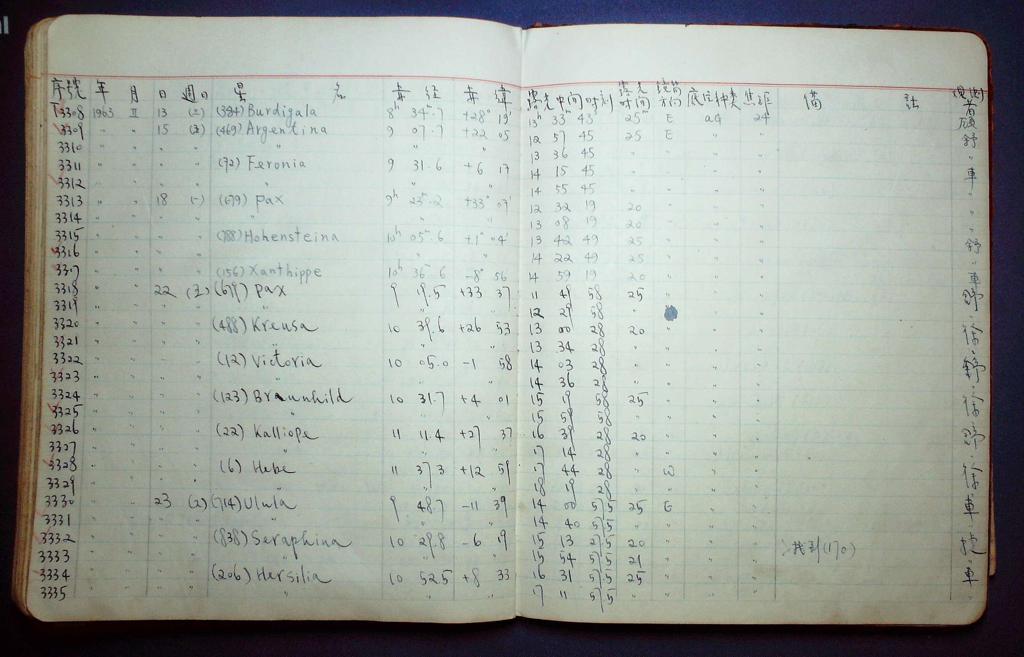 序號 年 月 日 週日 星 名 赤 經 赤 緯 露光中間時刻 露光時間 鏡筒方向 底片种类 焦距 備 註
3308 1963 II 13 (三) (394) Burdigala 8h 34.7 +28° 13' 13h 33 43 25 E 24
3309 " " 15 (469) Argentina 9 07.7 +22 05 12 57 45 25 E " " 舒
3310 " " " " " 13 36 45 " "
3311 " " " " (72) Feronia 9 31.6 +6 17 14 15 45 " 車
3312 " " " " " 14 55 45 "
3313 " " 18 (一) (679) Pax 9h 23.2 +33° 07' 12 32 19 20 "
3314 " " " 13 08 19 20 "
3315 " " (788) Hohensteina 10h 05.6 +1° 04' 13 42 49 25 舒
3316 " " " 14 22 49 25 "
3317 " " (156) Xanthippe 10h 36.6 -8° 56 14 59 19 20 車
3318 " " 22 (五) (679) Pax 9 19.5 +33 37 11 49 58 25 "
3319 " " " 12 29 58 " "
3320 " " (488) Kreusa 10 39.6 +26 53 13 00 28 20 " 徐
3321 " " " 13 34 28 " "
3322 " " (12) Victoria 10 05.0 -1 58 14 03 28 " 舒
3323 " " " 14 36 28 " "
3324 " " (123) Braunhild 10 31.7 +4 01 15 19 58 25 " 徐
3325 " " " 15 59 58 " "
3326 " " (22) Kalliope 11 11.4 +27 37 16 39 28 20 "
3327 " " " 17 14 28 " "
3328 " " (6) Hebe 11 37.3 +12 59 17 44 28 " W 徐
3329 " " " 18 19 28 " "
3330 " " 23 (714) Ulula 9 48.7 -11 39 14 00 55 25 E 車
3331 " " " 14 40 55 " "
3332 " " (838) Seraphina 10 29.8 -6 19 15 13 25 20 " 找到(170)
3333 " " " 15 54 55 21 "
3334 " " (206) Hersilia 10 52.5 +8 33 16 31 55 25 " 車
3335 " " " 17 11 55 " "